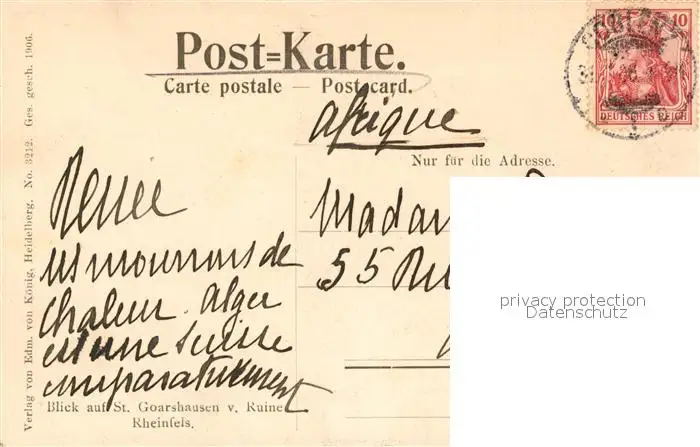 Post=Karte.
Carte postale — Postcard.
10 10
DEUTSCHES REICH
Afrique
Nur für die Adresse.
Madam
55 Ru
privacy protection
Datenschutz
Renee
ns mourrons de
chaleur. Alger
est une Suisse
comparativement
Blick auf St. Goarshausen v. Ruine
Rheinfels.
Verlag von Edm. von König, Heidelberg. No. 3212. Ges. gesch. 1906.